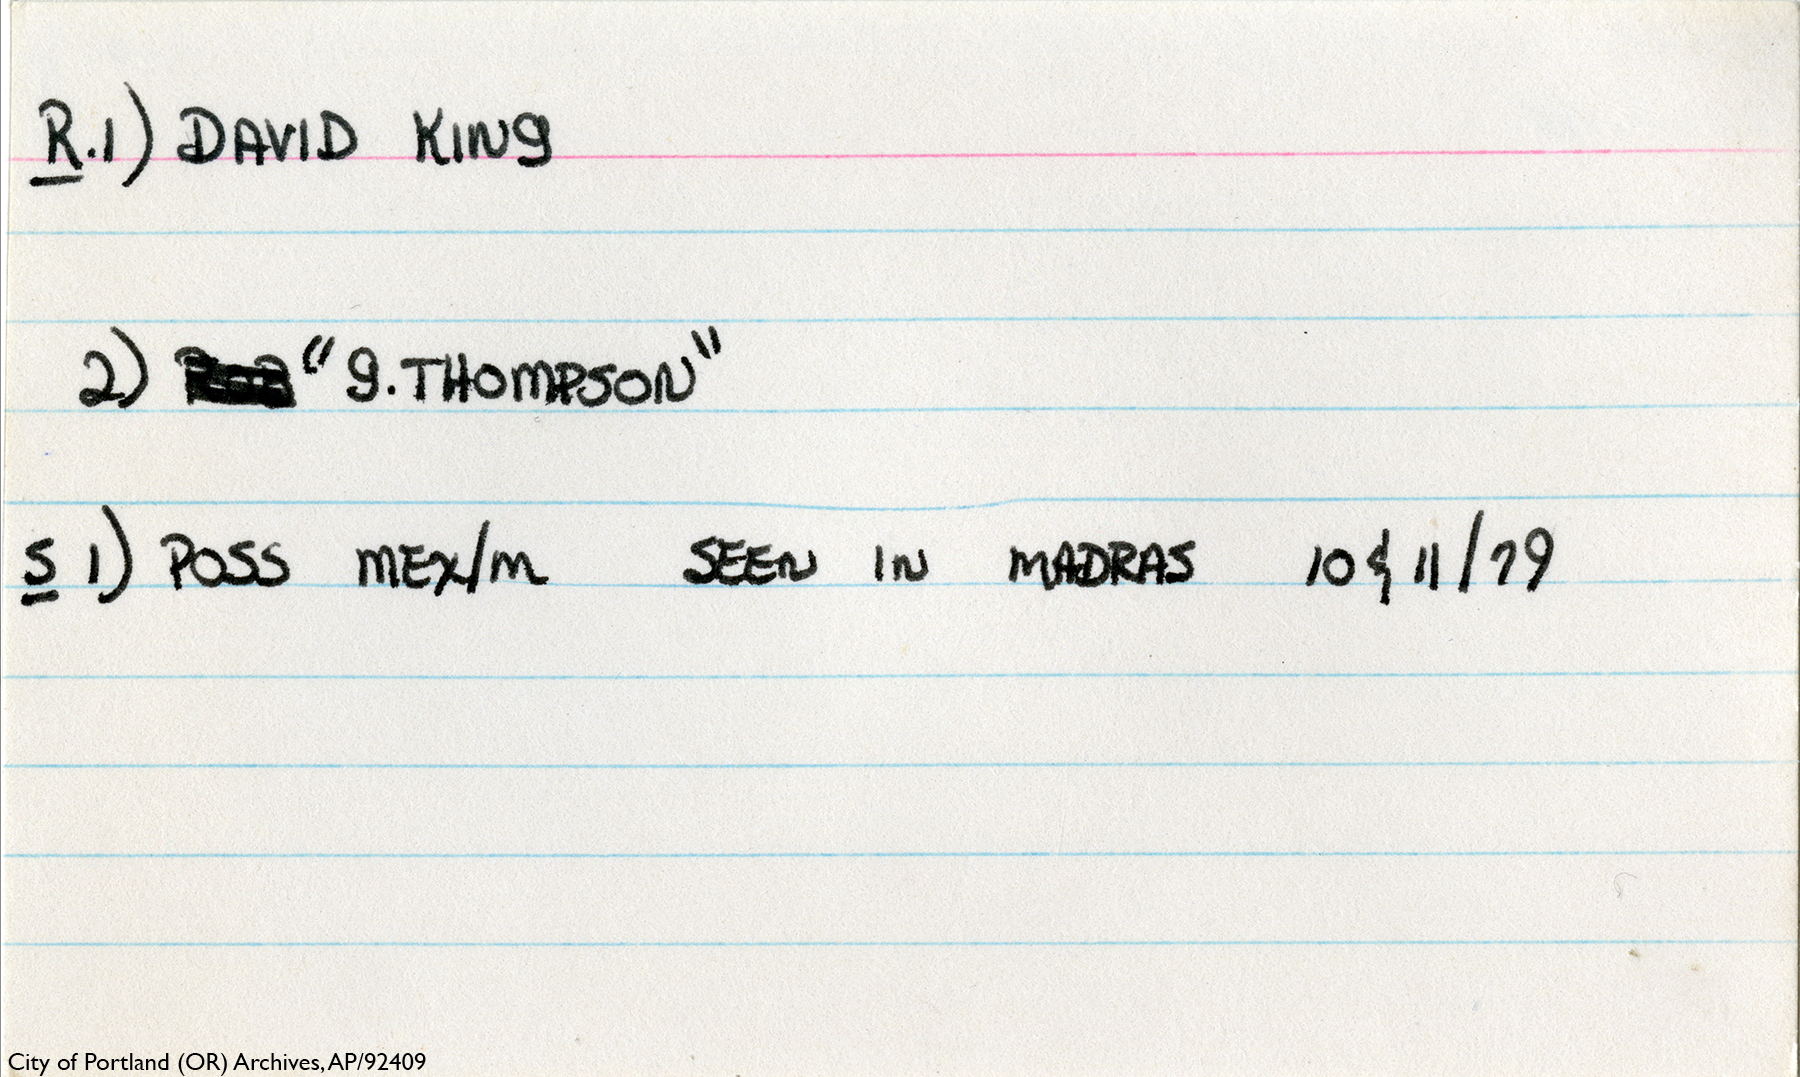 R.1) DAVID KING
2) "G. THOMPSON"
S 1) POSS MEX/M SEEN IN MADRAS 10 & 11/79
City of Portland (OR) Archives, AP/92409